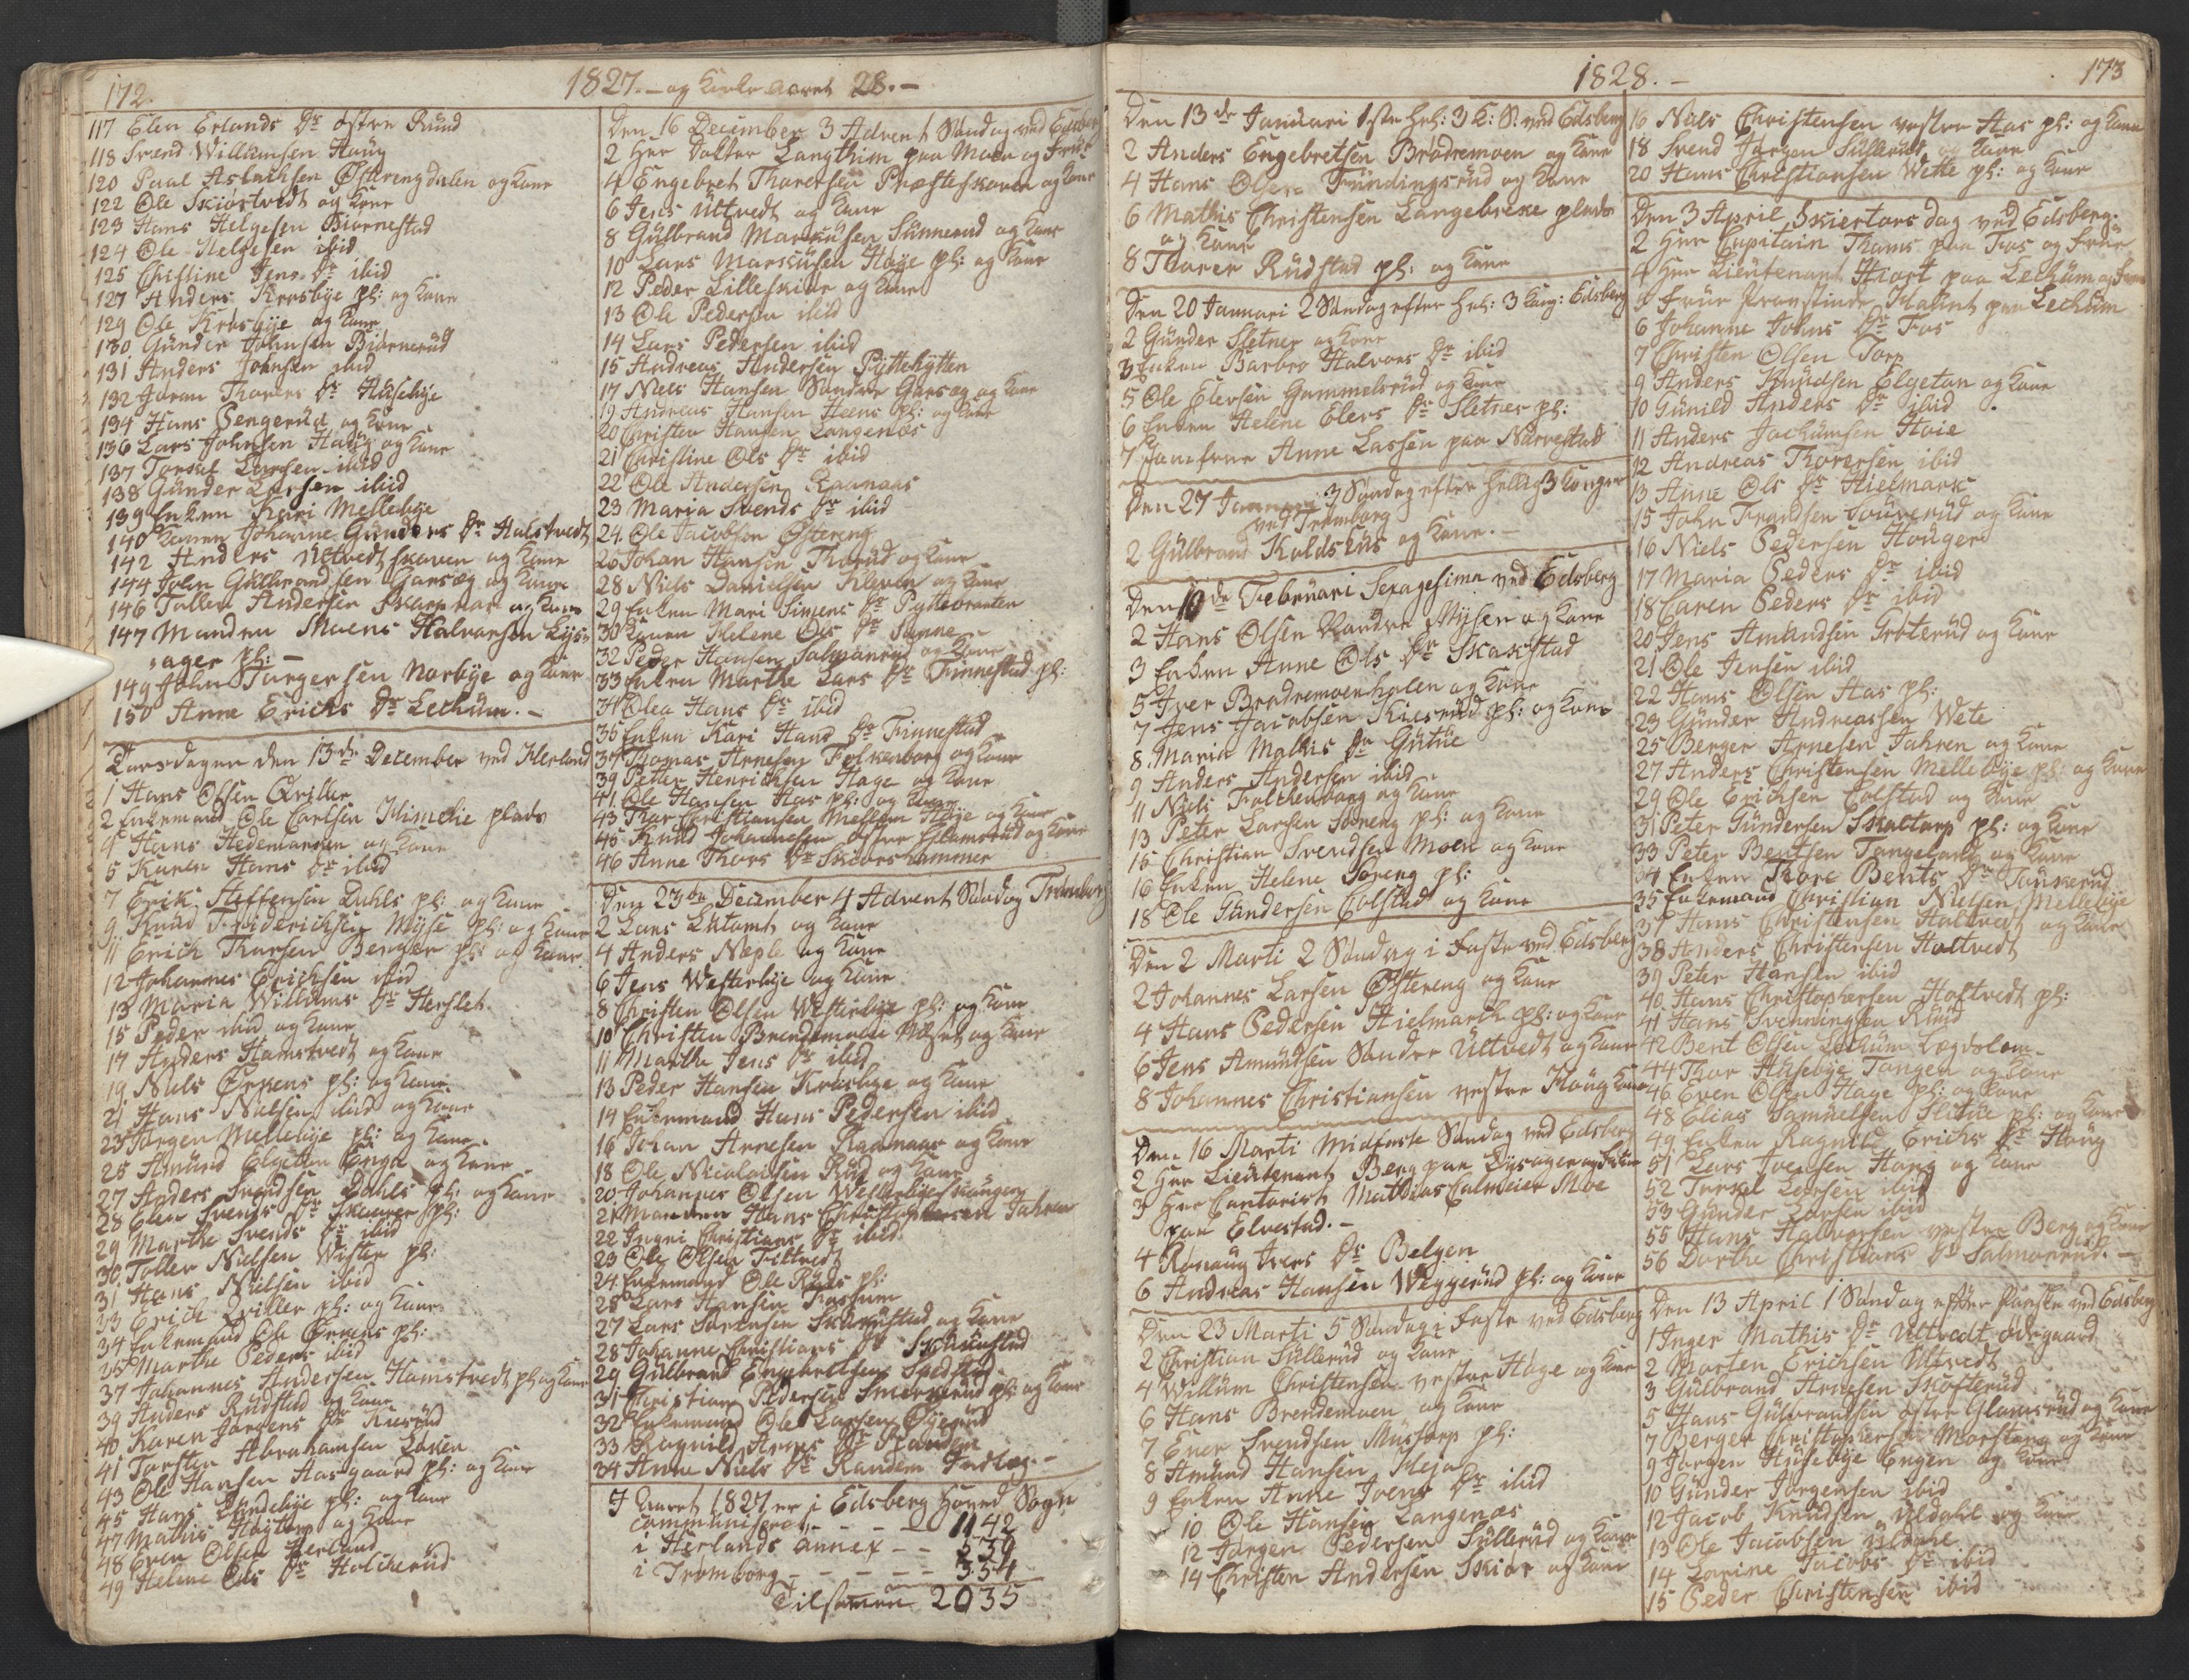 172.
1827. — og Kirke Aaret 28. —
117 Elen Erlands Dr østre Rùnd
118 Svend Willùmsen Haùg
120 Paul Aslachsen Østrengdalen og Kone
122 Ole Skiørtvedt og Kone
123 Hans Helgesen Biørnestad
124 Ole Helgesen ibid
125 Christine Jens Dr ibid
127 Anders Krosbye pl: og Kone
129 Ole Krosbye og Kone
130 Gùnder Johnsen Biørnerùd
131 Anders Johnsen ibid
132 Joran Thorers Dr Hùsebye
134 Hans Sengerùd og Kone
136 Lars Johnsen Haùg og Kone
137 Torkel Larsen ibid
138 Gùnder Larsen ibid
139 Enken Kari Mellebye
140 Konen Johanne Gùnders Dr Halstvedt
142 Anders Ultvedtskoven og Kone
144 John Gùlbrandsen Garsæg og Kone
146 Tollen Andersen Skarpnas og Kone
147 Manden Moens Halvorsen Lys-
ager pl: —
149 John Jùrgensen Norbye og Kone
150 Anne Erichs Dr Lechùm. —
Torsdagen den 13de December ved Herland
1 Hans Olsen Qviller
2 Enkemand Ole Carlsen Himelie plads
4 Hans Hedemarken og Kone
5 Karen Hans Dr ibid
7 Erik Steffensen Dahls pl: og Kone
9 Knùd Friderichsen Myse pl: og Kone
11 Erich Thorsen Berger pl: og Kone
12 Johannes Erichsen ibid
13 Maria Willùms Dr Herslet
15 Peder ibid og Kone
17 Anders Hamstvedt og Kone
19 Niels Ørkens pl: og Kone
21 Hans Nielsen ibid og Kone
23 Jørgen Mellebye pl: og Kone
25 Amùnd Elgetun Enga og Kone
27 Anders Svendsen Dahls pl: og Kone
28 Elen Svends Dr Skaarer pl:
29 Marthe Svends Dr ibid
30 Toller Nielsen Wister pl:
31 Hans Nielsen ibid
33 Erich Qviller pl: og Kone
34 Enkemand Ole Ørkens pl:
35 Marthe Peders ibid
37 Johannes Andersen Hamstvedt pl og Kone
39 Anders Rùdstad og Kone
40 Karen Jørgens Dr Kiesrùd
41 Torsten Abrahamsen Løken
43 Ole Hansen Aasgaard pl: og Kone
45 Hans Rindebye pl: og Kone
47 Mathis Høytorp og Kone
48 Even Olsen Herland
49 Helene Ols Dr Holckerùd
Den 16 December 3 Advent Søndag ved Edsberg
2 Her Doktor Langthim paa Moen og Frùe
4 Engebret Thoresen Præsteskoven og Kone
6 Jens Ultvedt og Kone
8 Gùlbrand Markùsen Sùnnerùd og Kone
10 Lars Markùsen Høye pl: og Kone
12 Peder Lilleskiør og Kone
13 Ole Pedersen ibid
14 Lars Pedersen ibid
15 Andreas Andersen Pyttehytten
17 Niels Hansen Søndre Garsæg og Kone
19 Andreas Hansen Heens pl: og Kone
20 Christen Hansen Langenæs
21 Christine Ols Dr ibid
22 Ole Andersen Raanaas
23 Maria Svends Dr ibid
24. Ole Jacobsen Østereng
26 Johan Hansen Thorùd og Kone
28 Niels Danielsen Kleven og Kone
29 Enken Mari Simens Dr Pyttebraaten
30 Konen Helene Ols Dr Sønne
32 Peder Hansen Salmanrùd og Kone
33 Enken Marthe Lars Dr Finnestad pl:
34 Olea Hans Dr ibid
35 Enken Kari Hans Dr Finnestad
37 Thomas Arnesen Folkenborg og Kone
39 Petter Henrichsen Hage og Kone
41. Ole Hansen Aas pl: og Kone
43 Thor Christiansen Mellem Høye og Kone
45 Knùd Johannesen østre Glamsrùd og Kone
46 Anne Thors Dr Skiørshammer
Den 23de December 4 Advent Søndag Trømborg
2 Lars Ultomt og Kone
4 Anders Næple og Kone
6 Jens Westerbye og Kone
8 Christen Olsen Westerbye pl: og Kone
10 Christen Brendemoen Næset og Kone
11 Marthe Jens Dr ibid
13 Peder Hansen Krosbye og Kone
14 Enkemand Hans Pedersen ibid
16 Johan Arnesen Raanaas og Kone
18 Ole Nicolaisen Rùd og Kone
20 Johannes Olsen Westerbyeskougen
21 Manden Hans Christophersen Jahren
22 Ingri Christians Dr ibid
23 Ole Olsen Filtvedt
24. Enkemand Ole Rùds pl:
25 Lars Hansen Fossum
27 Lars Sørensen Skaùestad og Kone
28 Johanne Christians Dr Skaùestad
29 Gùlbrand Engebretsen Spedstad
31 Christian Pedersen Smerkerùd pl: og Kone
32 Enkemand Ole Larsen Øyerùd
33 Ragnild Arnes Dr Randem
34 Anne Niels Dr Randem Indlæg. —
I Aaret 1827 er i Edsberg Hoved Sogn
communiseret — — — 1142
i Herlands annex — — 539
i Trømborg — — — — 354
Tilsamen 2035
1828. —
173
Den 13de Januari 1ste Hel: 3 K: S. ved Edsberg
2 Anders Engebretsen Brødremoen og Kone
4 Hans Olsen Fùndingsrùd og Kone
6 Mathis Christensen Langebreke plads
og Kone
8 Thorer Rùdstad pl: og Kone
Den 20 Januari 2 Søndag efter Hel: 3 Kong: Edsberg
2 Gùnder Sletner og Kone
3 Enken Barbro Halvors Dr ibid
5 Ole Elersen Gammelsrùd og Kone
6 Enken Helene Elers Dr Sletner pl:
7 Jomfrue Anne Lassen paa Narvestad
Den 27 Januari 3 Søndag efter Hellig 3 Konger
ved Trømborg
2 Gùlbrand Koldshùs og Kone. —
Den 10de Febrùari Sexagesima ved Edsberg
2 Hans Olsen Nordre Mysen og Kone
3 Enken Anne Ols Dr Skakstad
5 Iver Brødremoenholen og Kone
7 Jens Jacobsen Kiesrùd pl: og Kone
8. Maria Mathis Dr Gùtùe
9 Anders Andersen ibid
11 Niels Folckenborg og Kone
13 Peter Larsen Soreng pl: og Kone
15 Christian Svendsen Moen og Kone
16 Enken Helene Soreng pl:
18 Ole Gùndersen Colstad og Kone
Den 2 Marti 2 Søndag i Faste ved Edsberg
2 Johannes Larsen Østereng og Kone
4 Hans Pedersen Hielmarck pl: og Kone
6 Jens Amùndsen Søndre Ultvedt og Kone
8 Johannes Christiansen vestre Haùg Kone
Den 16 Marti Midfaste Søndag ved Edsberg
2 Her Lieùtenant Berg paa Lysager og Frùe
3 Her Cantorist Mathias Calmeier Moe
paa Elvestad. —
4 Rønaùg Ivers Dr Belgen
6 Andreas Hansen Weggerùd pl: og Kone
Den 23 Marti 5 Søndag i Faste ved Edsberg
2 Christian Sùllerùd og Kone
4 Willùm Christensen vestre Hage og Kone
6 Hans Brendemoen og Kone
7 Ener Svendsen Mùstorp pl:
8 Amùnd Hansen Heja
9 Enken Anne Joens Dr ibid
10 Ole Hansen Langenæs
12 Jørgen Pedersen Sùllerùd og Kone
14 Christen Andersen Skiør og Kone
16 Niels Christensen vestre Aas pl: og Kone
18 Svend Jørgen Sùllerùd og Kone
20 Hans Christiansen Wette pl: og Kone
Den 3 April Skiertorsdag ved Edsberg.
2 Her Capitain Thams paa Fos og Frùe
4 Her Lieùtenant Hiort paa Lechùm og Frue
5 Frùe Provstinde paa Lechùm
6 Johanne Johns Dr Fos
7 Christen Olsen Torp
9 Anders Knùdsen Elgetun og Kone
10 Gùnild Anders Dr ibid
11 Anders Jochùmsen Høie
12 Andreas Thorersen ibid
13 Anne Ols Dr Hielmark
15 John Frandsen Toùverùd og Kone
16 Niels Pedersen Houger
17 Maria Peders Dr ibid
18 Caren Peders Dr ibid
20 Jens Amùndsen Groterùd og Kone
21 Ole Jensen ibid
22 Hans Olsen Aas pl:
23 Gùnder Andreassen Wete
25 Berger Arnesen Jahren og Kone
27 Anders Christensen Mellebye pl: og Kone
29 Ole Erichsen Colstad og Kone
31 Peter Gùndersen Skaltorp pl: og Kone
33 Peter Bentsen Tangeland og Kone
34 Enken Thore Bents Dr Tùnkerùd
35 Enkemand Christian Nielsen Mellebye
37 Hans Christensen Haltvedt og Kone
38 Anders Christensen Holtvedt
39 Peter Hansen ibid
40. Hans Christophersen Hoftvedt pl:
41 Hans Svenningsen Rùùd
42 Bent Olsen Lechùm Lægdslem
44 Thor Hùsebye Tangen og Kone
46 Even Olsen Hage pl: og Kone
48 Elias Samùelsen Slitùe pl: og Kone
49 Enken Ragnild Erichs Dr Haùg
51 Lars Joensen Haùg og Kone
52 Torkel Larsen ibid
53 Gùnder Larsen ibid
55 Hans Halvorsen vestre Berg og Kone
56 Dorthe Christians Dr Salmonrùd. —
Den 13 April 1 Søndag efter Paaske ved Edsberg
1 Inger Mathis Dr Ultvedt ødegaard
2 Morten Erichsen Ultvedt
3 Gùlbrand Arnesen Skofterùd
5 Hans Gùlbrandsen østre Glamsrùd og Kone
7 Berger Christophersen Morstang og Kone
9 Jørgen Hùsebye Engen og Kone
10 Gùnder Jørgensen ibid
12 Jacob Knùdsen Uldahl og Kone
13 Ole Jacobsen
14 Lorine Jacobs Dr ibid
15 Peder Christensen ibid